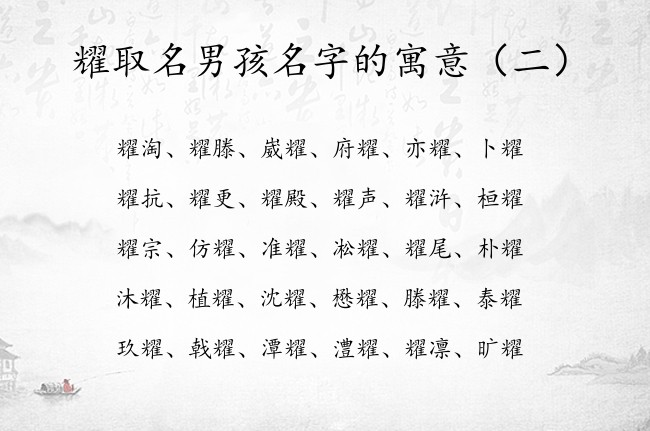 耀取名男孩名字的寓意（二）
耀淘、耀滕、崴耀、府耀、亦耀、卜耀
耀抗、耀更、耀殿、耀声、耀浒、桓耀
耀宗、仿耀、准耀、凇耀、耀尾、朴耀
沐耀、植耀、沈耀、懋耀、滕耀、泰耀
玖耀、戟耀、潭耀、澧耀、耀凛、旷耀